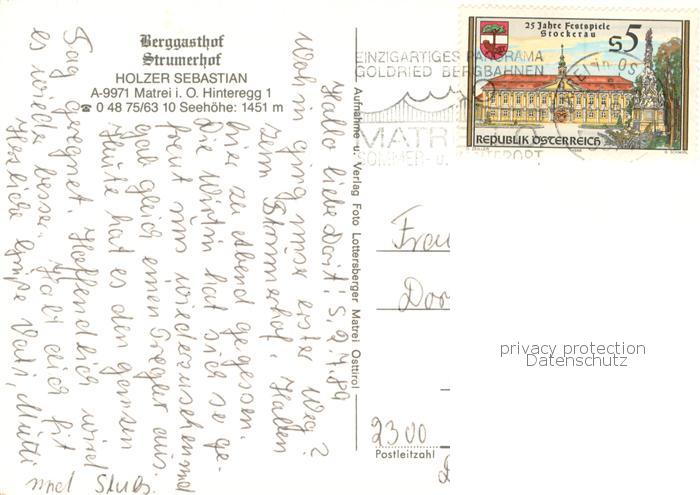 Berggasthof
Strumerhof
HOLZER SEBASTIAN
A-9971 Matrei i. O. Hinteregg 1
☎ 0 48 75/63 10 Seehöhe: 1451 m
Hallo liebe Dorit! S, 2.7.89
Wohin ging unser erster Weg?
Zum Strumerhof. Haben
hier zu Abend gegessen.
Die Wirtin hat sich so ge-
freut uns wiederzusehen und
gab gleich einen Tregler aus.
Heute hat es den ganzen
Tag geregnet. Hoffendlich wird
es wieder besser. Halt dich fit
Herzliche Grüße Vati, Mutti
und Stubs.
Aufnahme u. Verlag Foto Lottersberger Matrei Osttirol
EINZIGARTIGES PANORAMA
GOLDRIED BERGBAHNEN
MATREI
SOMMER- u.
25 Jahre Festspiele
Stockerau
S5
REPUBLIK ÖSTERREICH
Frau
Dor
2300
Postleitzahl
privacy protection
Datenschutz